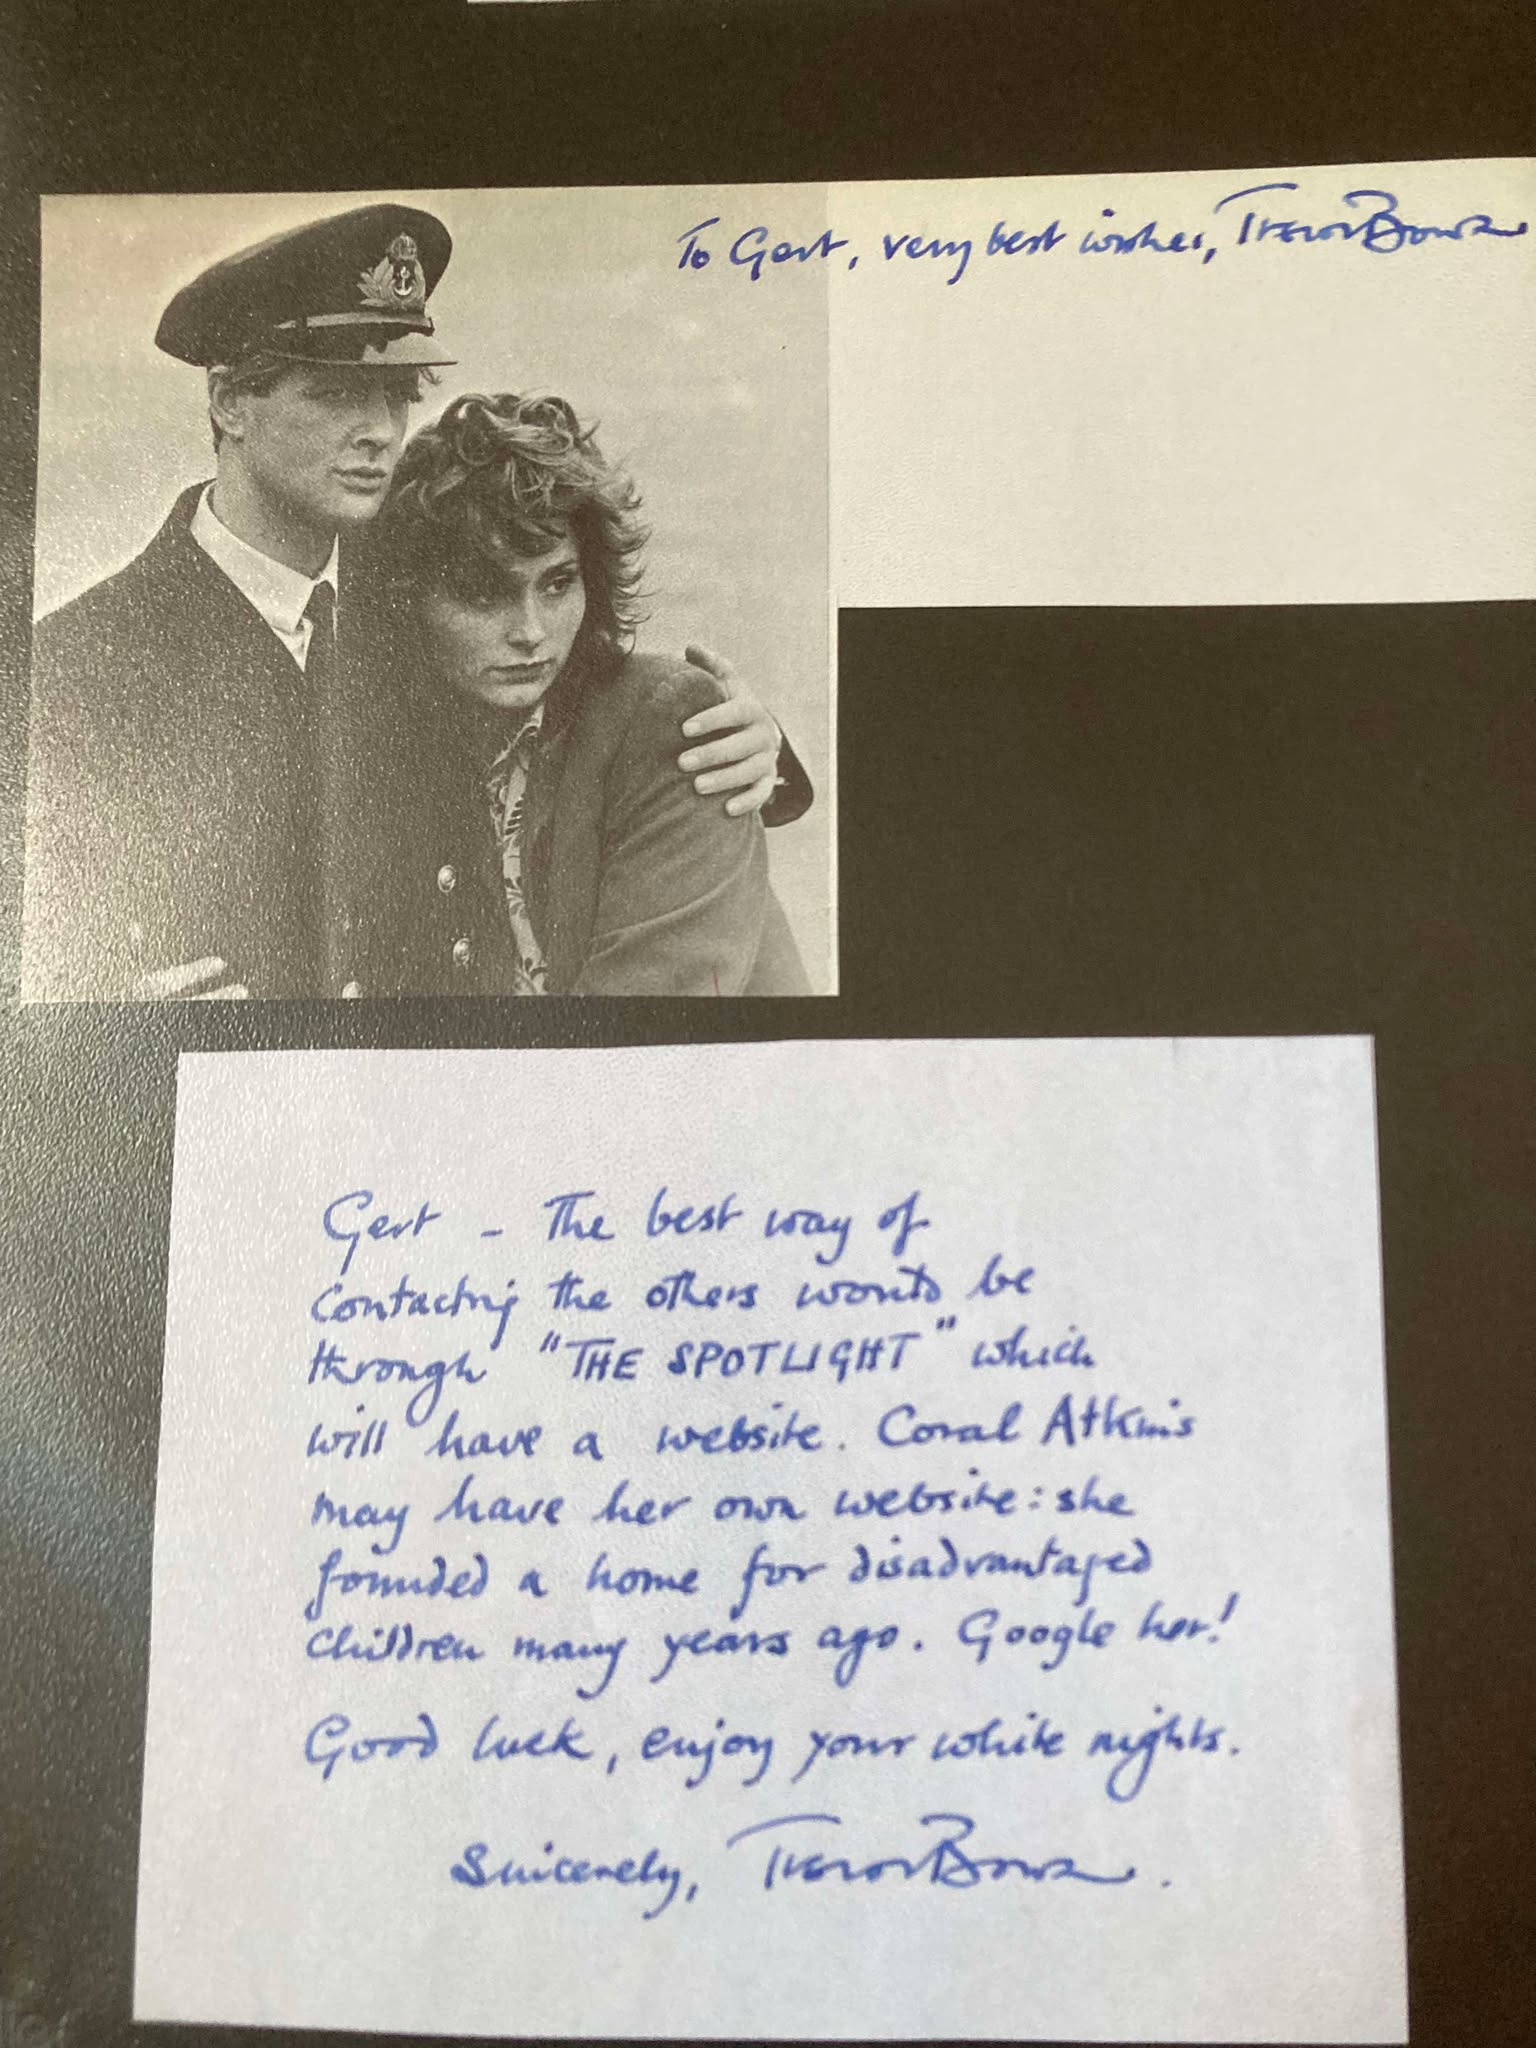 To Gert, very best wishes, Trevor Bowen
Gert - The best way of
contacting the others would be
through "THE SPOTLIGHT" which
will have a website. Coral Atkins
may have her own website: she
founded a home for disadvantaged
children many years ago. Google her!
Good luck, enjoy your white nights.
Sincerely, Trevor Bowen.